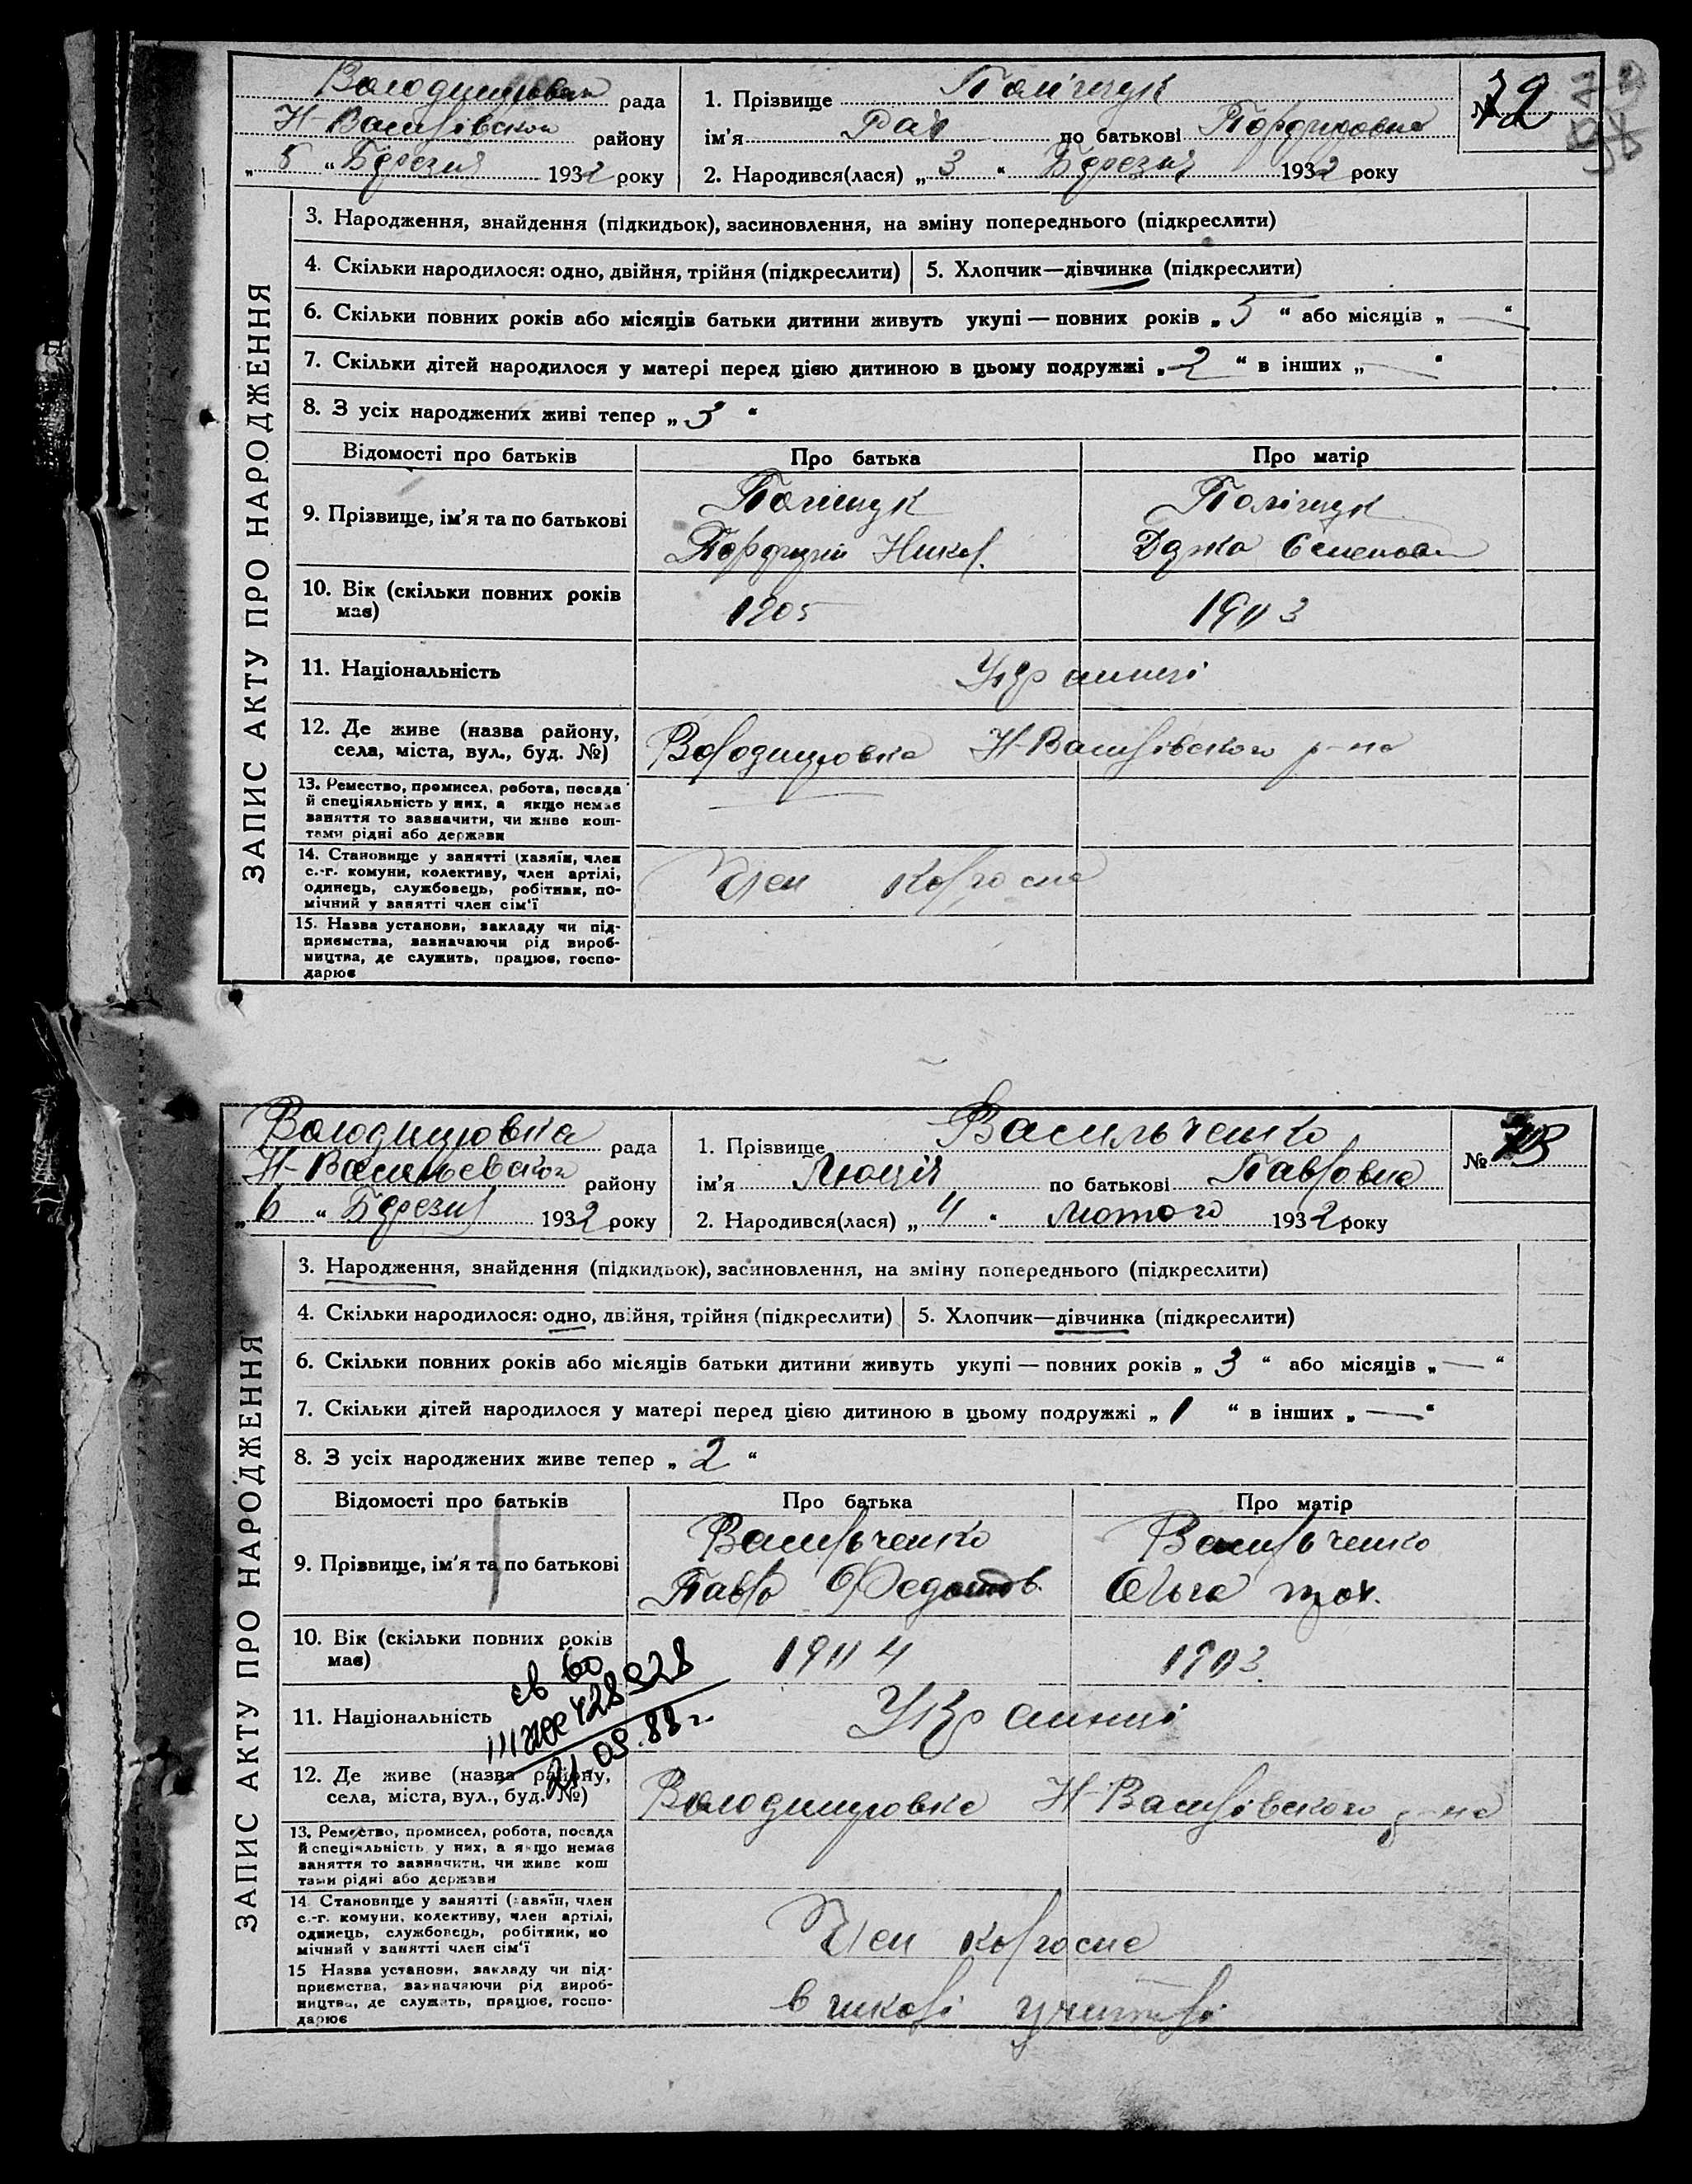 Володимировка рада
Н-Василівськой району
„ 5 “ Березня 1932 року
1. Прізвище Поліщук
ім'я Рая по батькові Порфировна
2. Народився(лася) „ 3 “ Березня 1932 року
№ 12
ЗАПИС АКТУ ПРО НАРОДЖЕННЯ
3. Народження, знайдення (підкидьок), засиновлення, на зміну попереднього (підкреслити)
4. Скільки народилося: одно, двійня, трійня (підкреслити) 5. Хлопчик—дівчинка (підкреслити)
6. Скільки повних років або місяців батьки дитини живуть укупі — повних років „ 5 “ або місяців „ — “
7. Скільки дітей народилося у матері перед цією дитиною в цьому подружжі „ 2 “ в інших „ — “
8. З усіх народжених живі тепер „ 3 “
Відомості про батьків Про батька Про матір
9. Прізвище, ім'я та по батькові
Поліщук
Порфирій Никол.
Поліщук
Семенов
10. Вік (скільки повних років має)
1905 1903
11. Національність Українці
12. Де живе (назва району, села, міста, вул., буд. №)
Володимировка Н-Василівского р-на
13. Ремество, промисел, робота, посада
й спеціяльність у них, а якщо немає
заняття то зазначити, чи живе кош-
тами рідні або держави
14. Становище у занятті (хазяїн, член
с.-г. комуни, колективу, член артілі,
одинець, службовець, робітник, по-
мічний у занятті член сім'ї
Член колгоспа
15. Назва установи, закладу чи під-
приємства, зазначаючи рід вироб-
ництва, де служить, працює, госпо-
дарює
Володимировка рада
Н-Васильевской району
„ 6 “ Березня 1932 року
1. Прізвище Васильченко
ім'я Люція по батькові Павловна
2. Народився(лася) „ 4 “ Лютого 1932 року
№ 13
ЗАПИС АКТУ ПРО НАРОДЖЕННЯ
3. Народження, знайдення (підкидьок), засиновлення, на зміну попереднього (підкреслити)
4. Скільки народилося: одно, двійня, трійня (підкреслити) 5. Хлопчик—дівчинка (підкреслити)
6. Скільки повних років або місяців батьки дитини живуть укупі — повних років „ 3 “ або місяців „ — “
7. Скільки дітей народилося у матері перед цією дитиною в цьому подружжі „ 1 “ в інших „ — “
8. З усіх народжених живе тепер „ 2 “
Відомості про батьків Про батька Про матір
9. Прізвище, ім'я та по батькові
Васильченко
Павло Федотов.
Васильченко
Ольга
10. Вік (скільки повних років має)
1904 1903
св во
428928
21.09.88 г.
11. Національність Українці
12. Де живе (назва району, села, міста, вул., буд. №)
Володимировка Н-Василівского р-на
13. Ремество, промисел, робота, посада
й спеціяльність у них, а якщо немає
заняття то зазначити, чи живе кош
тами рідні або держави
14. Становище у занятті (хазяїн, член
с.-г. комуни, колективу, член артілі,
одинець, службовець, робітник, по
мічний у занятті член сім'ї
Член колгоспа
15 Назва установи, закладу чи під-
приємства, зазначаючи рід вироб-
ництва, де служить, працює, госпо-
дарює
в школі учителі